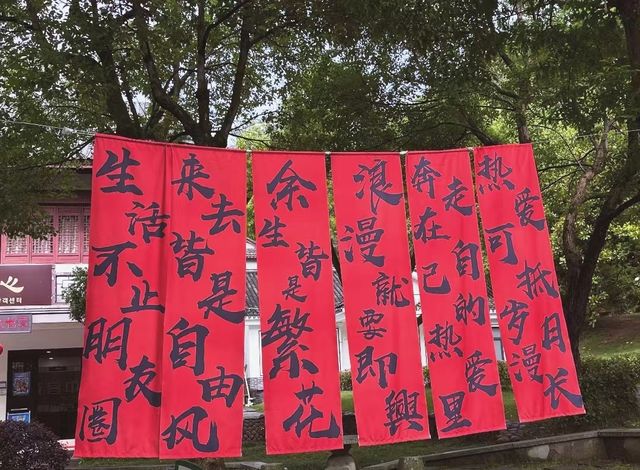 生活不止朋友圈
来去皆是自由风
余生皆是繁花
浪漫就要即興
奔走在自己的热爱里
热爱可抵岁月漫长
객센터